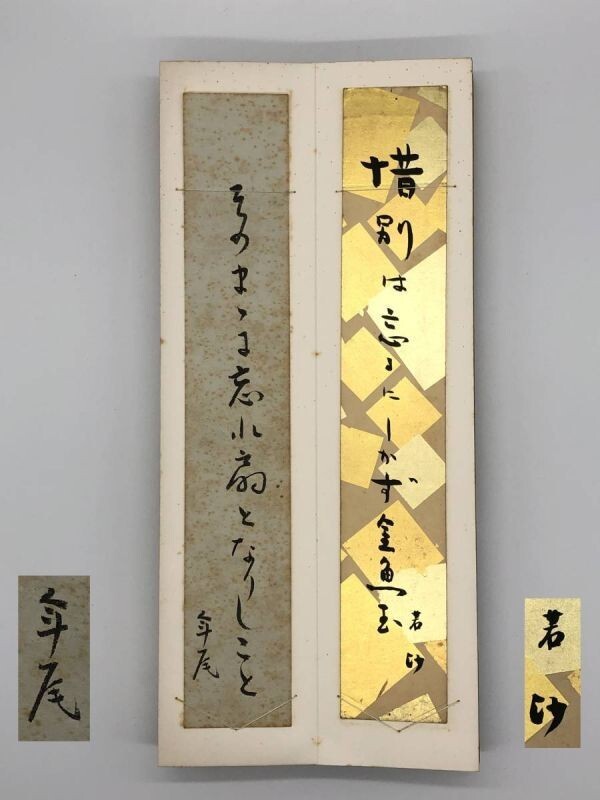 惜別は忘るにしかず金魚玉
若沙
そのまゝに忘れ扇となりしこと
年尾
若沙
年尾